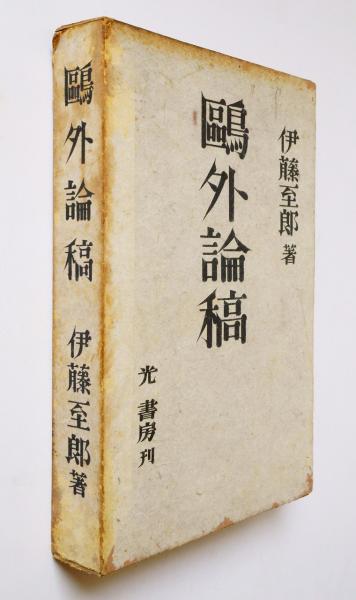 鷗外論稿
伊藤至郎著
伊藤至郎著
鷗外論稿
光書房刊